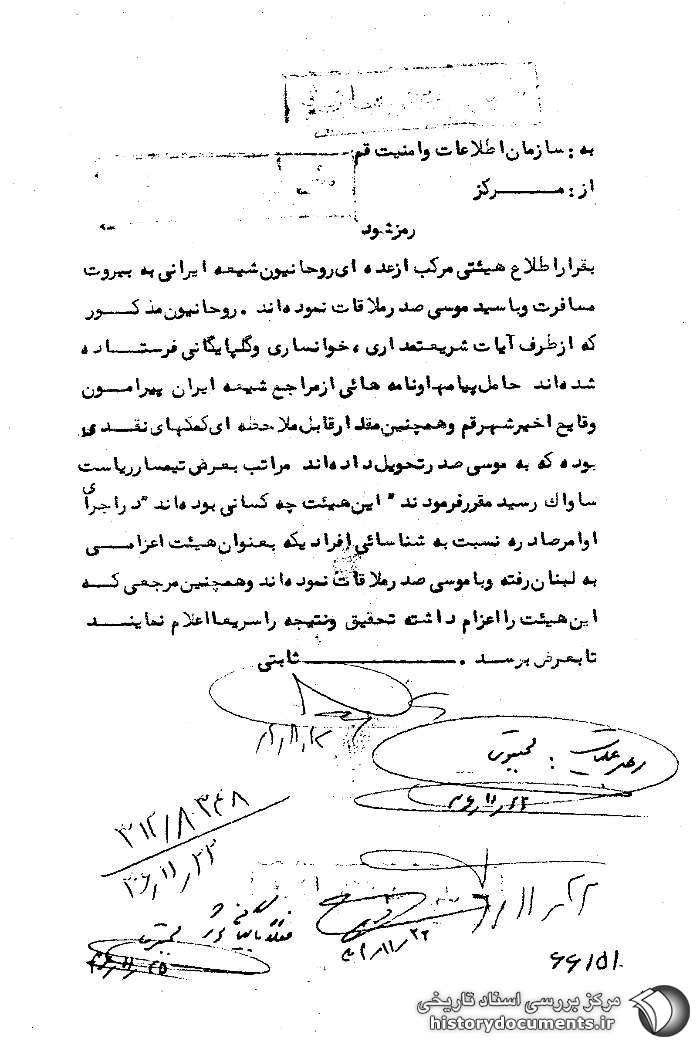 به : سازمان اطلاعات وامنیت قم
از : مـــرکز
رمزشود
بقراراطلاع هیئتی مرکب ازعده ای روحانیون شیعه ایرانی به بیروت
مسافرت وبا سید موسی صدرملاقات نموده اند . روحانیون مذکــور
که ازطرف آیات شریعتمداری ، خوانساری وگلپایگانی فرستــاده
شده اند حامل پیامهاونامه هائی ازمراجع شیعه ایران پیرامون
وقایع اخیرشهرقم وهمچنین مقدارقابل ملاحظه ای کمکهای نقدی
بوده که به موسی صدرتحویل داده اند مراتب بعرض تیمسارریاست
ساواك رسید مقررفرمودند " این هیئت چه کسانی بوده اند " دراجرای
اوامرصادره نسبت به شناسائی افرادیکه بعنوان هیئت اعزامــی
به لبنان رفته وباموسی صدرملاقات نموده اند وهمچنین مرجعی کــه
این هیئت رااعزام داشته تحقیق ونتیجه راسریعااعلام نماینــد
تابعرض برسد . ثابتی
۳۱۲/۸۰۳۴۸
۳۶/۱۱/۲۲
۶۶۱۵۱
مرکز بررسی اسناد تاریخی
historydocuments.ir